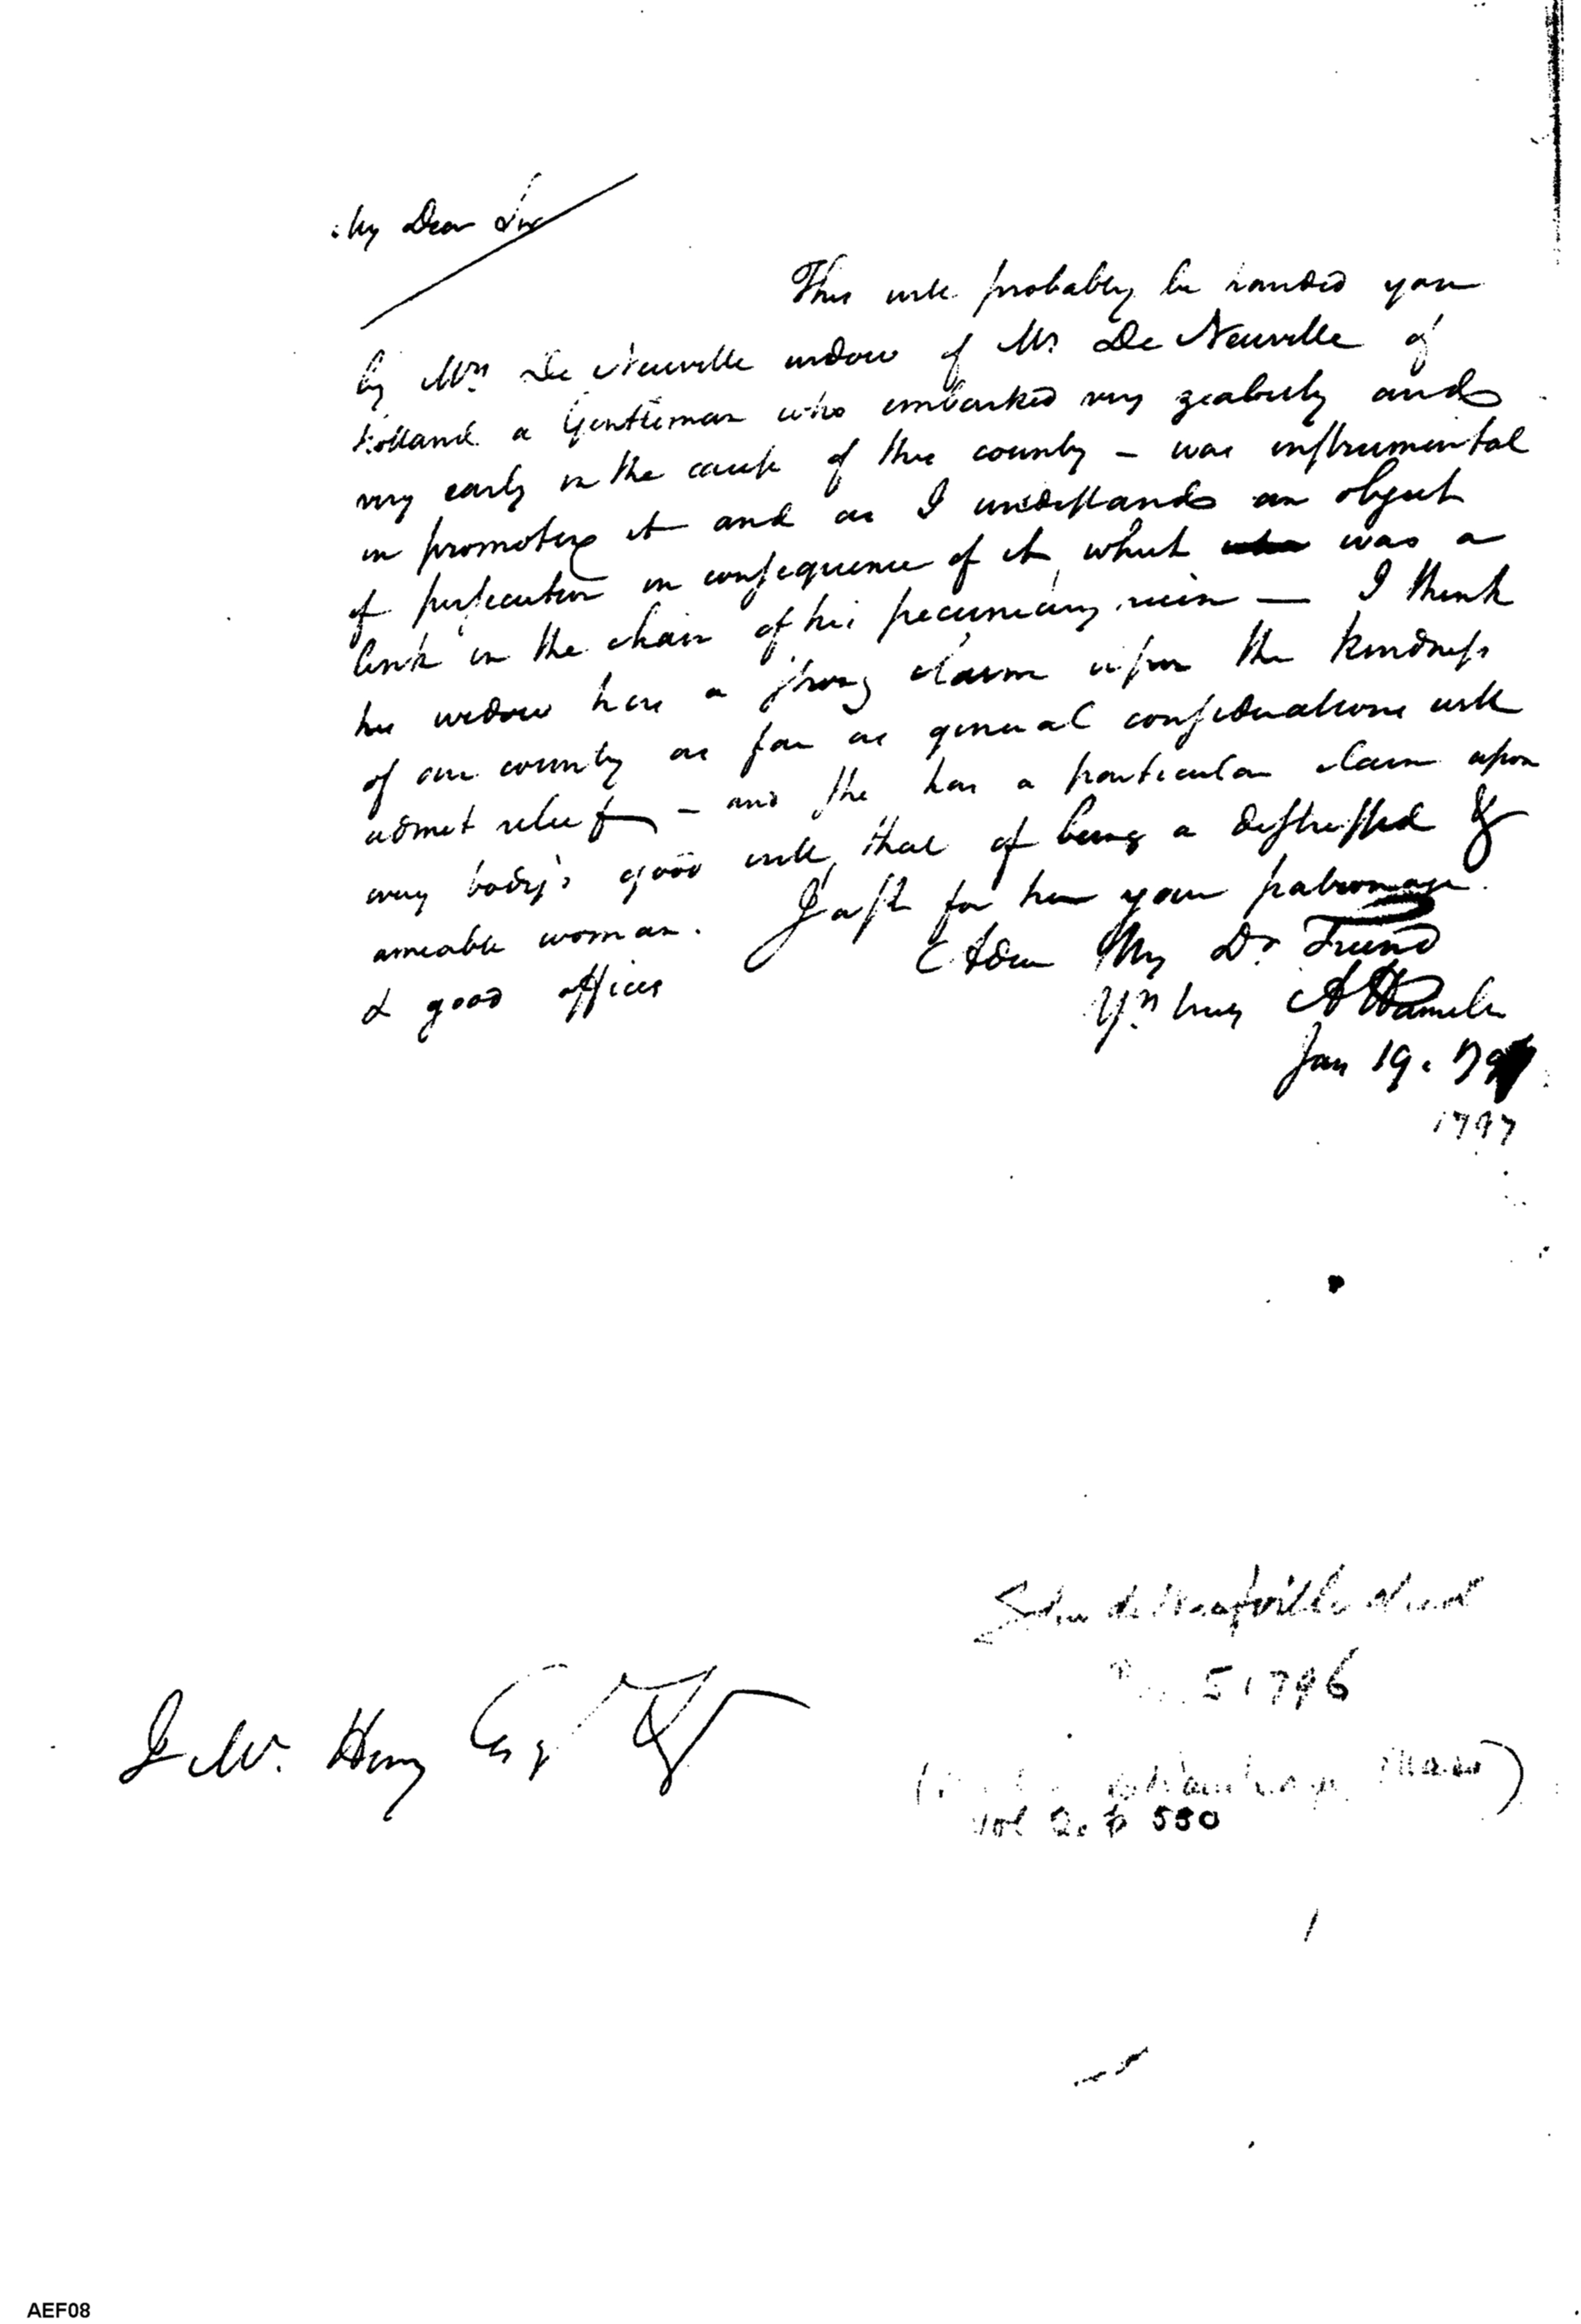 My Dear Sir
This will probably be handed you
by Mrs De Neuville widow of Mr De Neuville of
Holland a Gentleman who embarked very zealously and
very early in the cause of this country – was instrumental
in promoting it and as I understand an object
of persecution in consequence of it, which was a
link in the chain of his pecuniary ruin — I think
his widow has a strong claim upon the kindness
of our country as far as general considerations will
admit relief – and she has a particular claim upon
every body's good will, that of being a distressed &
amiable woman. I ask for her your patronage
& good offices
Adieu My Dr Friend
Yrs truly A Hamilton
Jan 19. 797
1797
J Mc. Henry Esqr
John de Neufville died
5 1796
Vol 2. p 550
AEF08